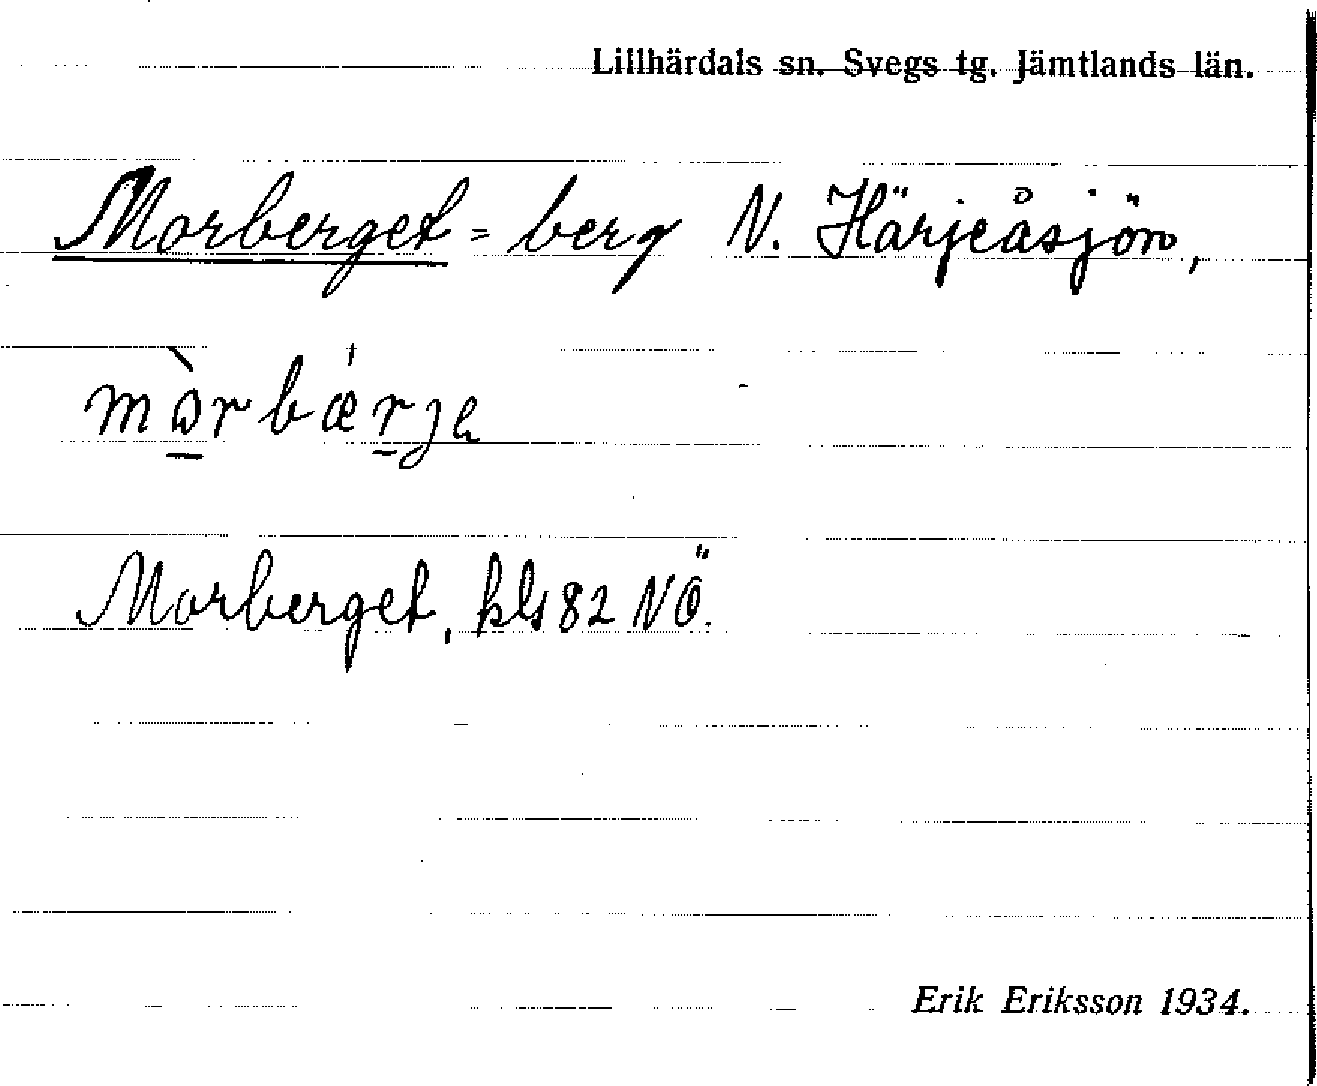 Lillhärdals sn. Svegs tg. Jämtlands län.
Morberget = berg N. Härjeåsjön,
mòrbǽrje
Morberget, bl 82 NÖ.
Erik Eriksson 1934.